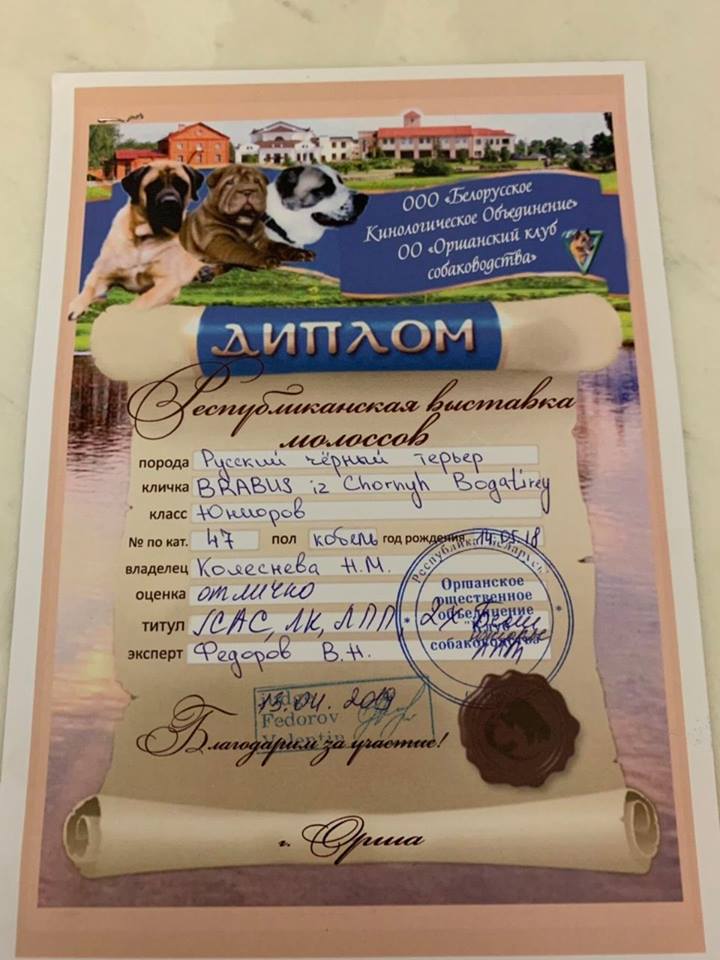 ООО «Белорусское
Кинологическое Объединение»
ОО «Оршанский клуб
собаководства»
ДИПЛОМ
Республиканская выставка
молоссов
порода Русский чёрный терьер
кличка BRABUS iz Chornyh Bogatirey
класс Юниоров
№ по кат. 47 пол кобель год рождения 14.05.18
владелец Колеснева Н.М.
оценка отлично
титул JCAC, ЛК, ЛПП, 2х
эксперт Федоров В.Н.
Республика Беларусь
Оршанское
общественное
объединение
"Клуб
собаководства"
15.04.2019
Fedorov
Valentin
Благодарим за участие!
г. Орша